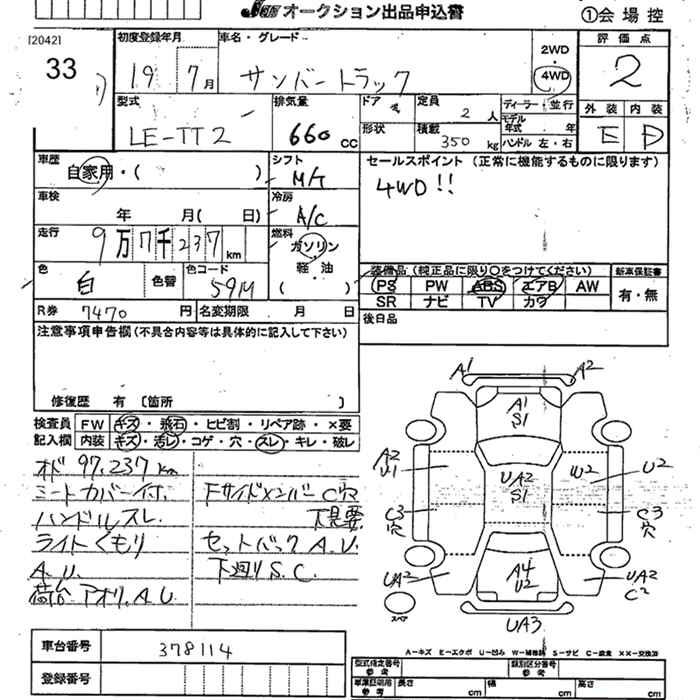 JAA オークション出品申込書
①会場控
I20421
33
初度登録年月
19 7月
車名・グレード
サンバートラック
2WD
4WD
評価点
2
型式
LE-TT2
排気量
660 cc
ドア
形状
定員
2人
積載
350 kg
ディーラー・並行
モデル年式 年
ハンドル 左・右
外装 内装
E D
車歴
自家用・( )
シフト
M/T
セールスポイント (正常に機能するものに限ります)
4WD!!
車検
年 月( 日)
冷房
A/C
走行
9万7千237km
燃料
ガソリン
軽・油
色
白
色替
色コード
59M
装備品(純正品に限り○をつけてください)
新車保証書
PS PW ABS エアB AW
SR ナビ TV カワ
有・無
R券 7470 円
名変期限 月 日
後日品
注意事項申告欄(不具合内容等は具体的に記入して下さい)
修復歴 有 〔箇所 〕
検査員 FW キズ・飛石・ヒビ割・リペア跡・×要
記入欄 内装 キズ・汚レ・コゲ・穴・スレ・キレ・破レ
オド 97,237km
ミートカバー付
ハンドルスレ
ライトくもり
A.U.
荷台アオリ.A.U
FサイドメンバーC穴
下見要
セットバックA.U.
下廻りS.C.
A1
A2
A1
S1
A2
U1
UA2
S1
W2
U2
C3
穴
C3
穴
UA2
A4
U2
UA2
C2
スペア
UA3
A－キズ E－エクボ U－凹み W－補修跡 S－サビ C－腐食 ××－交換済
車台番号
378114
登録番号
型式指定番号
参考
類別区分番号
参考
長さ cm
幅 cm
高さ cm